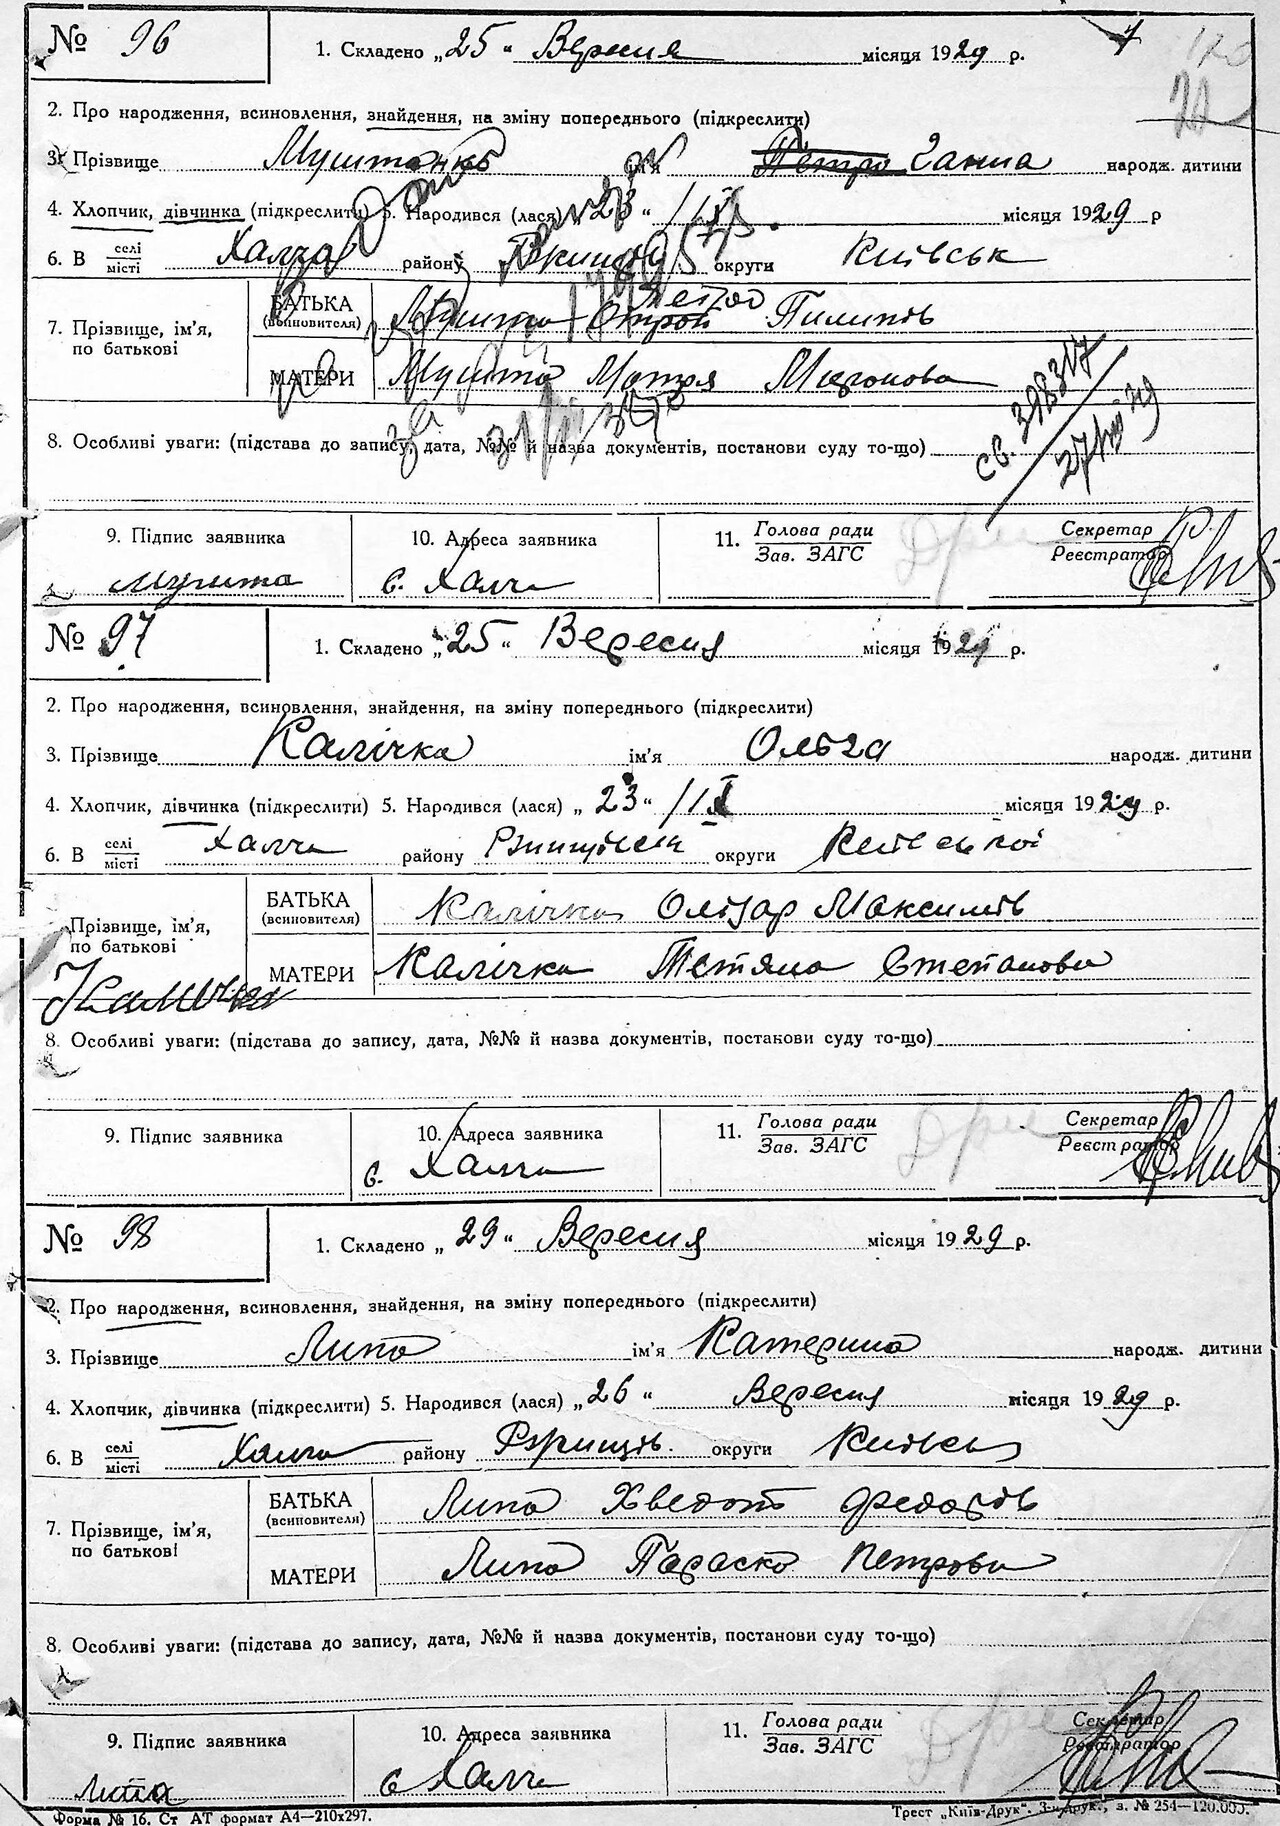 № 96
1. Складено „25“ Вересня місяця 1929 р.
2. Про народження, всиновлення, знайдення, на зміну попереднього (підкреслити)
3. Прізвище ім'я Петро Ганна народж. дитини
4. Хлопчик, дівчинка (підкреслити) 5. Народився (лася) „23“ /IX місяця 1929 р
6. В селі/місті Халча району округи Київськ
7. Прізвище, ім'я, по батькові
БАТЬКА (всиновителя) Петро Пилипів
МАТЕРИ Мушта Мотря Миронова
8. Особливі уваги: (підстава до запису, дата, №№ й назва документів, постанови суду то-що)
св. 398317
9. Підпис заявника
10. Адреса заявника
11. Голова ради
Зав. ЗАГС
Секретар
Реєстратор
Мушта
с. Халча
№ 97
1. Складено „25“ Вересня місяця 1929 р.
2. Про народження, всиновлення, знайдення, на зміну попереднього (підкреслити)
3. Прізвище Калічка ім'я Ольга народж. дитини
4. Хлопчик, дівчинка (підкреслити) 5. Народився (лася) „23“ /IX місяця 1929 р.
6. В селі/місті Халча району округи Київської
Прізвище, ім'я, по батькові
БАТЬКА (всиновителя) Калічка Олізар Максимів
МАТЕРИ Калічка Тетяна Степанова
8. Особливі уваги: (підстава до запису, дата, №№ й назва документів, постакови суду то-що)
9. Підпис заявника
10. Адреса заявника
11. Голова ради
Зав. ЗАГС
Секретар
Реєстратор
с. Халча
№ 98
1. Складено „29“ Вересня місяця 1929 р.
2. Про народження, всиновлення, знайдення, на зміну попереднього (підкреслити)
3. Прізвище Липа ім'я Катерина народж. дитини
4. Хлопчик, дівчинка (підкреслити) 5. Народився (лася) „26“ Вересня місяця 1929 р.
6. В селі/місті Халча району Ржищів. округи Київськ
7. Прізвище, ім'я, по батькові
БАТЬКА (всиновителя) Липа Хведот Федосів
МАТЕРИ Липа Параска Петрова
8. Особливі уваги: (підстава до запису, дата, №№ й назва документів, постанови суду то-що)
9. Підпис заявника
10. Адреса заявника
11. Голова ради
Зав. ЗАГС
Секретар
Реєстратор
Липа
с Халча
Форма № 16. Ст АТ формат А4—210х297.
Трест „Київ-Друк“. 3-я друк., з. № 254—120.000.